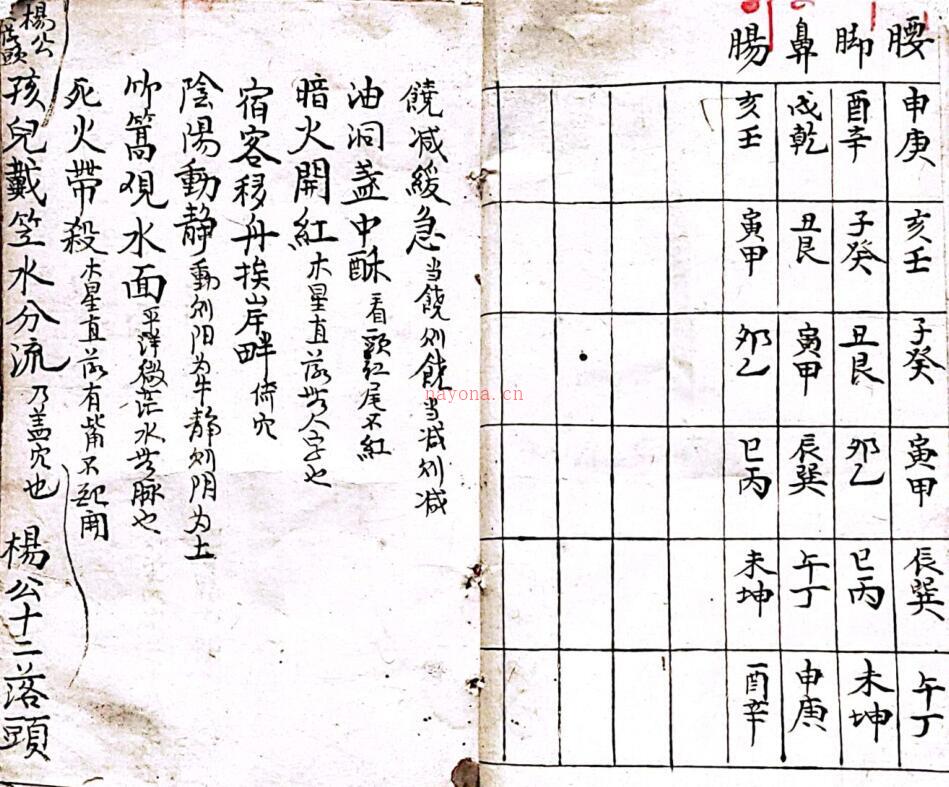 腰 申庚 亥壬 子癸 寅甲 辰巽 午丁
脚 酉辛 子癸 丑艮 夘乙 巳丙 未坤
鼻 戌乾 丑艮 寅甲 辰巽 午丁 申庚
腸 亥壬 寅甲 夘乙 巳丙 未坤 酉辛
饒减緩急 当饒则饒当减则减
油洞盏中酥 看頭红尾不紅
暗火開紅 木星直落无人字也
宿客移舟挨岸畔 倚穴
陰陽動静 動则阳为牛静则阴为土
竹篙覌水面 平洋微茫水无脉也
死火帶殺 木星直落有嘴不起開
孩兒戴笠水分流 乃盖穴也 楊公十二落頭
楊公
落頭
nayona.cn